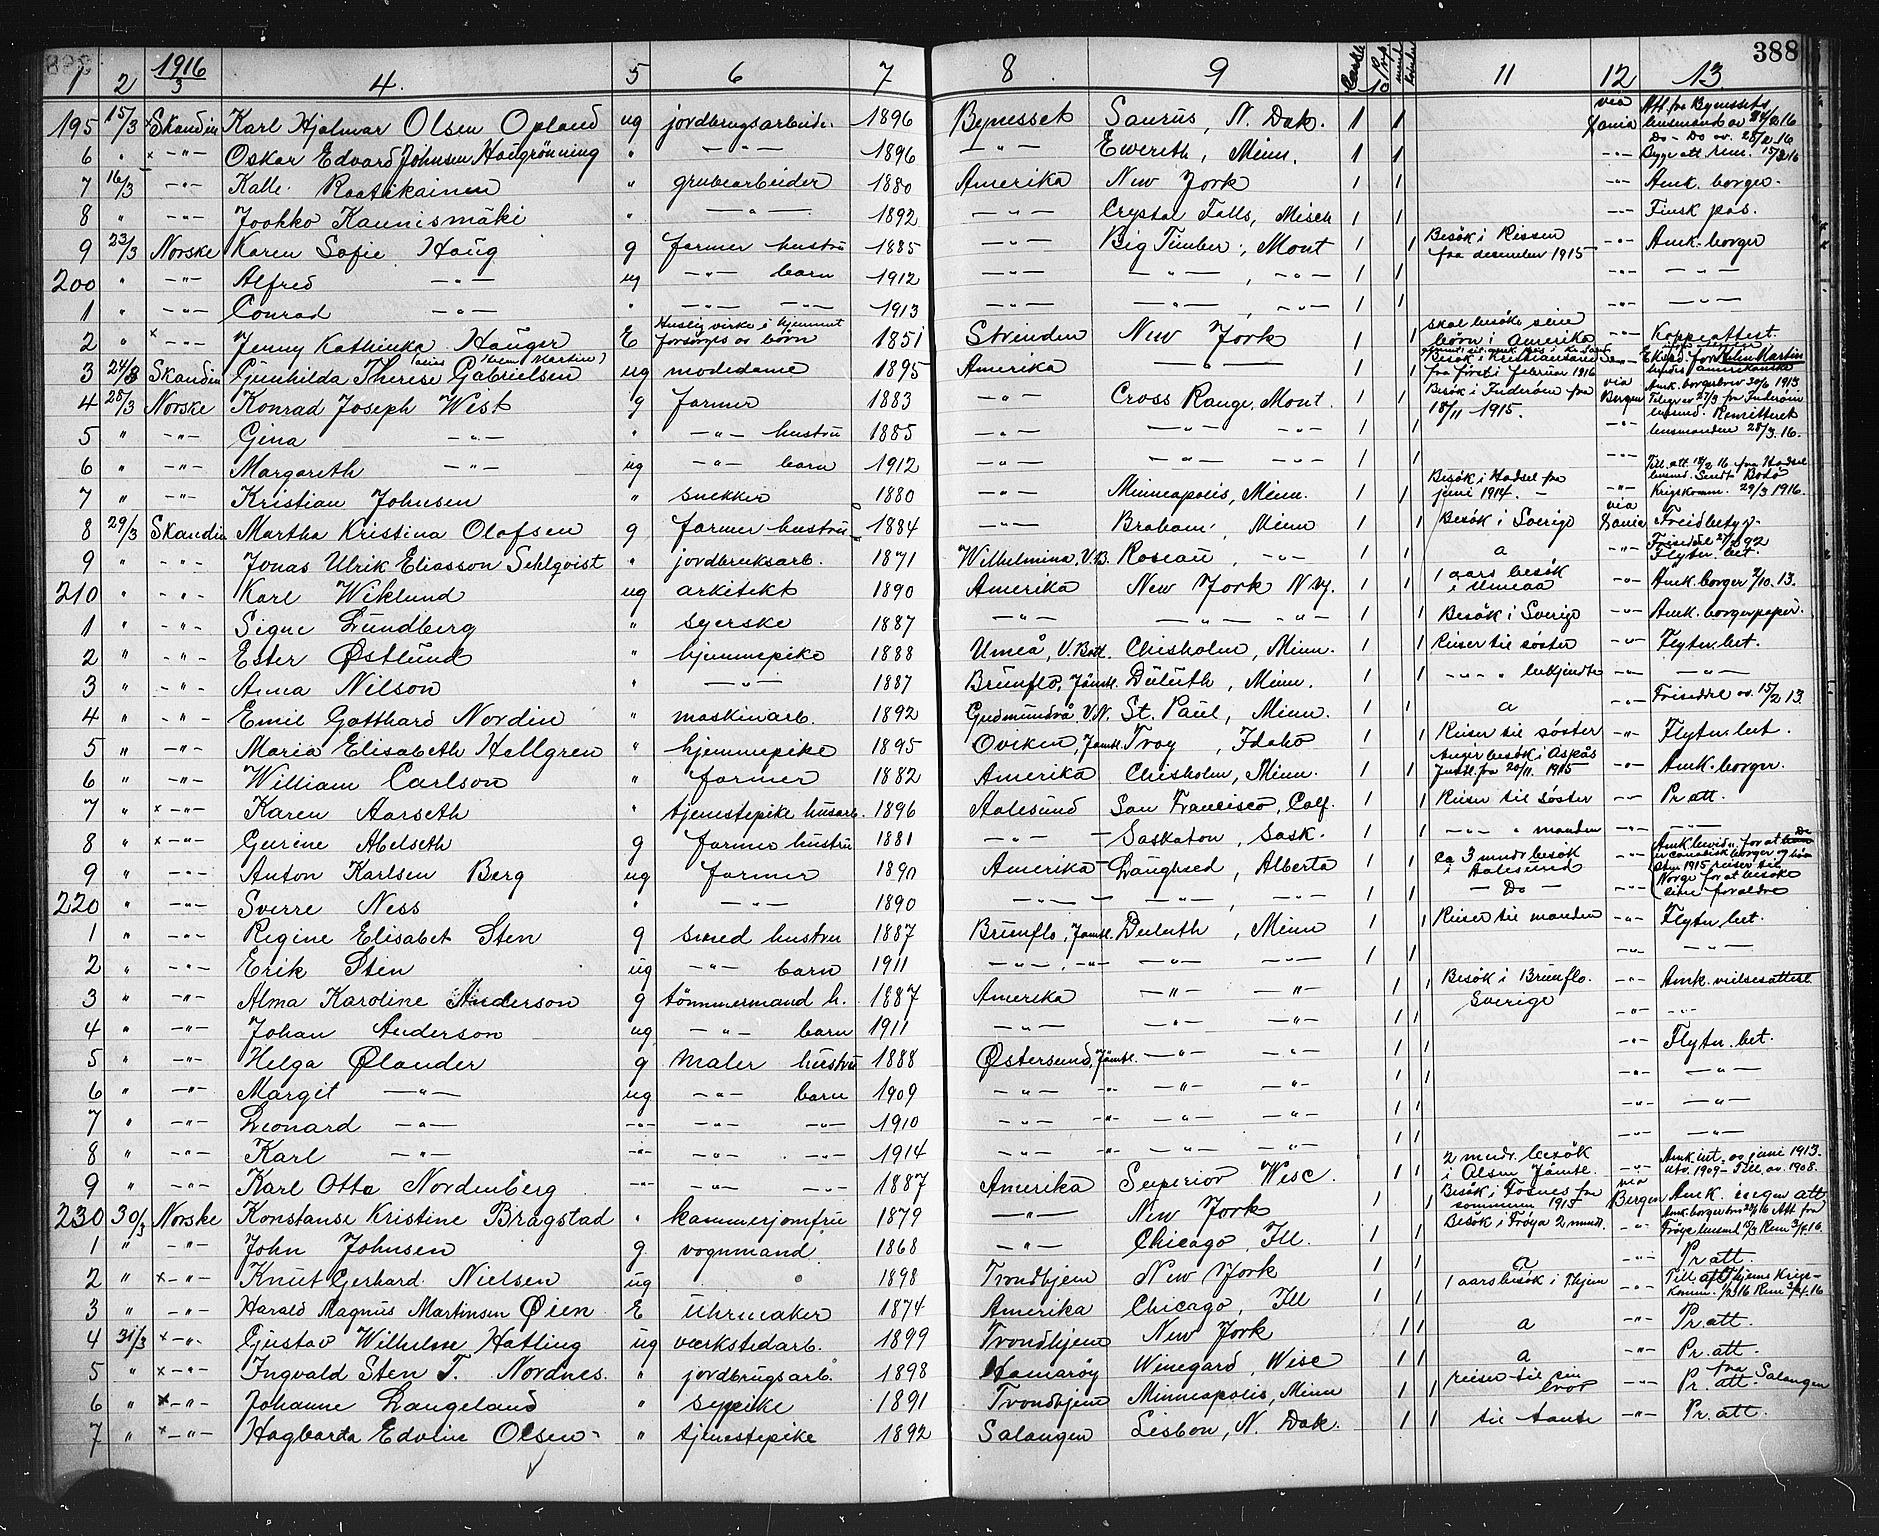 388
1916
1 2 3 4. 5 6 7 8 9 10 11 12 13
195 15/3 × Skandin Karl Hjalmar Olsen Opland ug jordbrugsarbeide. 1896 Bynesset Saurus, N. Dak. 1 1 via Dania Att. fra Bynessets lensmand av 24/2 16
6 " × -"- Oskar Edvard Johnsen Haugrønning " -"- 1896 -"- Ewereth, Minn. 1 1 -"- Do - Do av. 28/2 16
7 16/3 -"- Kalle Raatikainen " grubearbeider 1880 Amerika New York 1 1 -"- Amk. borger.
8 " -"- Joohko Kaunismäki " -"- 1892 -"- Crystal Falls, Misch 1 1 -"- Finsk pas.
9 23/3 Norske Karen Sofie Haug g farmer hustru 1885 -"- Big Timber, Mont 1 1 Besök i Rissen fra desember 1915 -"- Amk. borger
200 " -"- Alfred -"- ug -"- barn 1912 -"- -"-, -"- 1 1 -"- -"-
1 " -"- Conrad -"- " -"- -"- 1913 -"- -"-, -"- 1 1 -"- -"-
2 " × -"- Jenny Kathinka Hauger E Huslig virke i hjemmet forsörges av börn 1851 Strinden New York 1 1 skal besöke sine börn i Amerika -"- Koppeattest.
3 24/3 Skandin Gunhilda Therese Gabrielsen ug modedame 1895 Amerika -"- 1 1 Besök i Kristiansand fra först i februar 1916 -"-
4 28/3 Norske Konrad Joseph West g farmer 1883 -"- Cross Range, Mont. 1 1 Besök i Inderöen fra 18/11 1915. via Bergen Amk. borgerbrev 30/6 1913
5 " -"- Gina -"- " -"- hustru 1885 -"- -"- -"- 1 1 -"- lensmanden 28/3. 16.
6 " -"- Margareth -"- ug -"- barn 1912 -"- -"- -"- 1 1 -"-
7 " -"- Kristian Johnsen " snekker 1880 -"- Minneapolis, Minn. 1 1 Besök i Hadsel fra juni 1914. -"- Krigskomm. 29/3 1916.
8 29/3 Skandin Martha Kristina Olafsen g farmer hustru 1884 -"- Braham, Minn 1 1 Besök i Sverige via Dania Freidbetyg.
9 " -"- Jonas Ulrik Eliasson Sehlqvist " jordbruksarb. 1871 Wilhelmina, V.B. Roseau, -"- 1 1 a -"- Flytn. bet.
210 " -"- Karl Wiklund ug arkitekt 1890 Amerika New York N.Y. 1 1 1 aars besök i Umeaa -"- Amk. borger 7/10. 13.
1 " -"- Signe Lundberg " syerske 1887 -"- -"- -"- 1 1 Besök i Sverige -"- Amk. borgerpaper.
2 " -"- Ester Østlund " hjemmepike 1888 Umeå, V. Bott. Chisholm, Minn. 1 1 Reiser til søster -"- Flytn. bet.
3 " -"- Anna Nilson " -"- 1887 Brunflo, Jämtl. Duluth, Minn. 1 1 -"- " bekjendte -"- -"-
4 " -"- Emil Gotthard Nordin " maskinarb. 1892 Gudmundrå, V.N. St. Paul, Minn. 1 1 a Frisedel av. 15/2 13.
5 " -"- Maria Elisabeth Hellgren " hjemmepike 1895 Oviken, Jämtl. Troy, Idaho 1 1 Reiser til søster -"- Flytn. bet.
6 " -"- William Carlson " farmer 1882 Amerika Chisholm, Minn. 1 1 Jmtl. fra 20/11. 1915 -"- Amk. borger.
7 " × -"- Karen Aarseth " tjenestepike husarb. 1896 Aalesund San Francisco, Calf. 1 1 Reiser til søster -"- Pr att.
8 " × -"- Gurine Abelseth g farmer hustru 1881 -"- Saskaton, Sask. 1 1 -"- " manden -"- -"-
9 " -"- Anton Karlsen Berg ug farmer 1890 Amerika Laughsed, Alberta 1 1 ca 3 mndr besök i Aalesund -"-
220 " -"- Sverre Ness " -"- 1890 -"- -"-, -"- 1 1 - Do - -"- Norge for at besöke sine foraldre
1 " -"- Regine Elisabet Sten g smed hustru 1887 Brunflo, Jämtl. Duluth, Minn 1 1 Reiser til manden -"- Flytn. bet.
2 " -"- Erik Sten ug -"- barn 1911 -"-, -"- -"- -"- 1 1 -"- -"-
3 " -"- Alma Karoline Anderson g tömmermand h. 1887 Amerika -"- -"- 1 1 Besök i Brunflo. Sverige -"- Amk. vielsesattest.
4 " -"- Johan Anderson ug -"- barn 1911 -"- -"- -"- 1 1 -"- -"-
5 " -"- Helga Ølander g Maler hustru 1888 Østersund, Jämtl. -"- -"- 1 1 -"- Flytn. bet.
6 " -"- Margit -"- ug -"- barn 1909 -"- -"- -"- -"- 1 1 -"- -"-
7 " -"- Leonard -"- -"- -"- -"- 1910 -"- -"- -"- -"- 1 1 -"- -"-
8 " -"- Karl -"- -"- -"- -"- 1914 -"- -"- -"- -"- 1 1 -"- -"-
9 " -"- Karl Otto Nordenberg -"- -"- -"- 1887 Amerika Superior Wisc. 1 1 2 mndr. besök i Alsen Jämtl. -"- Amk. int. av juni 1913.
230 30/3 Norske Konstanse Kristine Bragstad " kammerjomfru 1879 -"- New York 1 1 Besök i Fosnes fra sommeren 1915 via Bergen Amk. insegn att.
1 " -"- John Johnsen g. vognmand 1868 -"- Chicago, Ill. 1 1 Besök i Fröya 2 mndr. -"-
2 " × -"- Knut Gerhard Nielsen ug " 1898 Trondhjem New York 1 1 a -"- Pr att.
3 " -"- Harald Magnus Martinsen Øien E Uhrmaker 1874 Amerika Chicago, Ill 1 1 1 aars besök i Thjem -"-
4 31/3 × -"- Gustav Wilhelm Hatling ug værkstedarb. 1899 Trondhjem New York 1 1 a -"- Pr. att.
5 " × -"- Ingvald Sten T. Nordnes. " jordbrugsarb. 1898 Hamarøy Winegard, Wisc 1 1 a -"- Pr. att.
6 " × -"- Johanne Langeland " sypike 1891 Trondhjem Minneapolis, Minn 1 1 reiser til sin bror -"- Pr. att. fra Salangen
7 " × -"- Hagbarta Edvine Olsen - " tjenestepike 1892 Salangen Lisbon, N. Dak. 1 1 til tante -"- Pr. att.